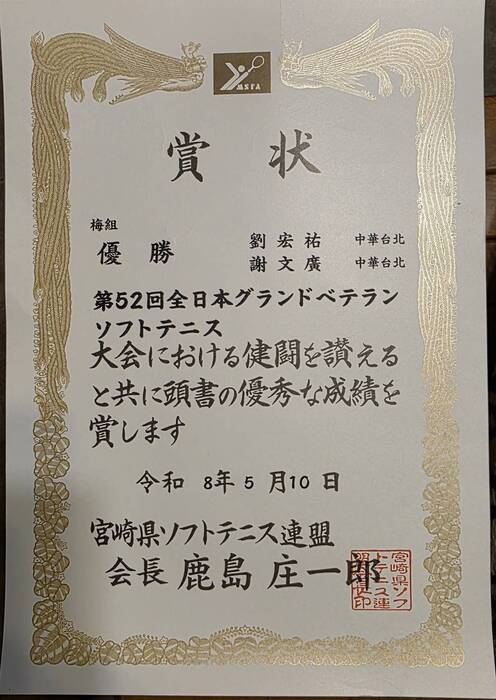 MSTA
賞状
梅組
優勝 劉宏祐 中華台北
謝文廣 中華台北
第52回全日本グランドベテラン
ソフトテニス
大会における健闘を讃える
と共に頭書の優秀な成績を
賞します
令和 8年 5月10日
宮崎県ソフトテニス連盟
会長 鹿島 庄一郎
宮崎県ソフ
トテニス連
盟会長印